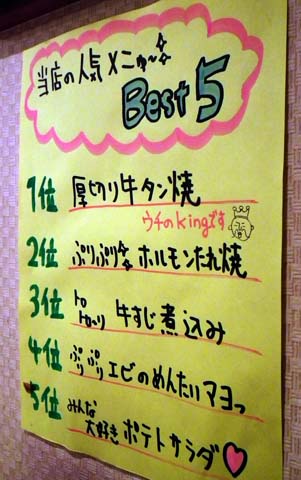 当店の人気メニュ〜
Best 5
1位 厚切り牛タン焼
ウチのkingです
2位 ぷりぷり ホルモンたれ焼
3位 トロトローリ 牛すじ煮込み
4位 ぷりぷり エビのめんたいマヨっ
5位 みんな大好き ポテトサラダ